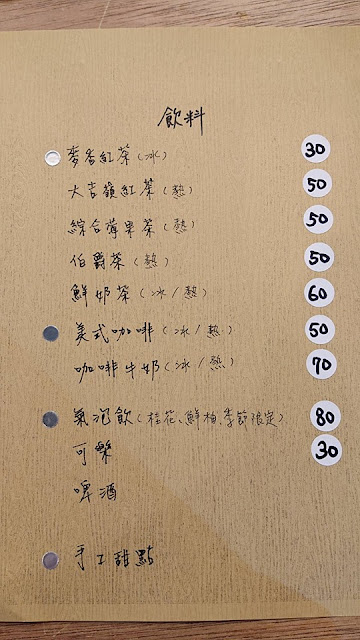 飲料
麥香紅茶(冰) 30
大吉嶺紅茶(熱) 50
綜合莓果茶(熱) 50
伯爵茶(熱) 50
鮮奶茶(冰/熱) 60
美式咖啡(冰/熱) 50
咖啡牛奶(冰/熱) 70
氣泡飲(桂花、鮮柚、季節限定) 80
可樂 30
啤酒
手工甜點